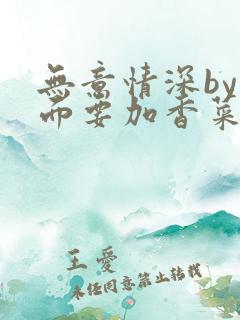 無意情深by
而要加香菜
王愛
未经同意禁止转载